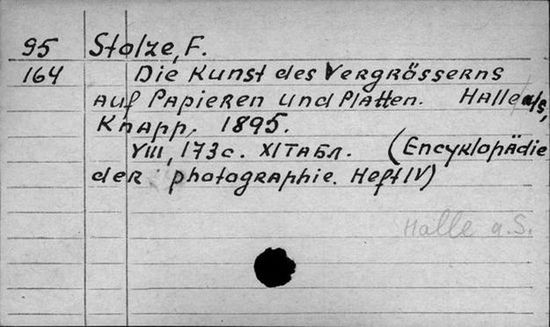 95 Stolze, F.
164 Die Kunst des Vergrösserns
auf Papieren und Platten. Halle a/s,
Knapp, 1895.
VIII, 173c. XI табл. (Encyklopädie
der photographie. Heft IV)
Halle a.S.